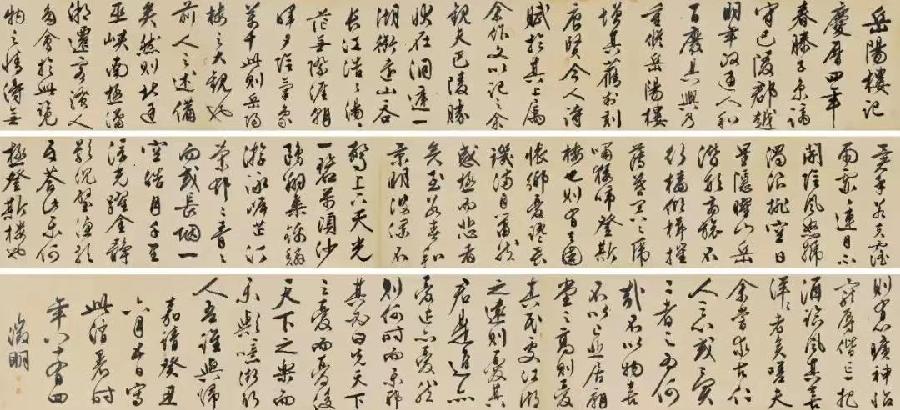 岳陽樓記
慶曆四年
春滕子京謫
守巴陵郡越
明年政通人和
百廢具興乃
重修岳陽樓
增其舊制刻
唐賢今人詩
賦於其上屬
余作文以記之余
觀夫巴陵勝
狀在洞庭一
湖銜遠山吞
長江浩浩湯湯
橫無際涯朝
暉夕陰氣象
萬千此則岳陽
樓之大觀也
前人之述備
矣然則北通
巫峽南極瀟
湘遷客騷人
多會於此覽
物之情得無
異乎若夫霪
雨霏霏連月不
開陰風怒號
濁浪排空日
星隱曜山岳
潛形商旅不
行檣傾楫摧
薄暮冥冥虎
嘯猿啼登斯
樓也則有去國
懷鄉憂讒畏
譏滿目蕭然
感極而悲者
矣至若春和
景明波瀾不
驚上下天光
一碧萬頃沙
鷗翔集錦鱗
游泳岸芷汀
蘭郁郁青青
而或長烟一
空皓月千里
浮光躍金靜
影沉璧漁歌
互答此樂何
極登斯樓也
則有心曠神怡
寵辱偕忘把
酒臨風其喜
洋洋者矣嗟夫
余嘗求古仁
人之心或異
二者之為何
哉不以物喜
不以己悲居廟
堂之高則憂
其民處江湖
之遠則憂其
君是進亦
憂退亦憂然
則何時而樂耶
其必曰先天下
之憂而憂後
天下之樂而
樂歟噫微斯
人吾誰與歸
嘉靖癸丑
六月日寫
此消暑時
年八十有四
徵明